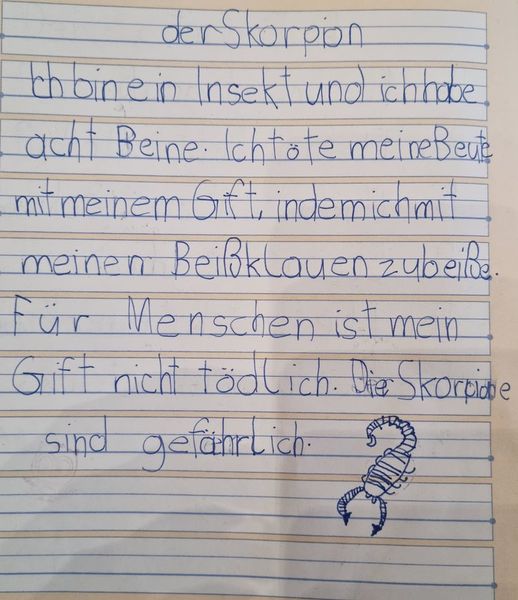 der Skorpion
Ich bin ein Insekt und ich habe
acht Beine. Ich töte meine Beute
mit meinem Gift, indem ich mit
meinen Beißklauen zubeiße.
Für Menschen ist mein
Gift nicht tödlich. Die Skorpione
sind gefährlich.